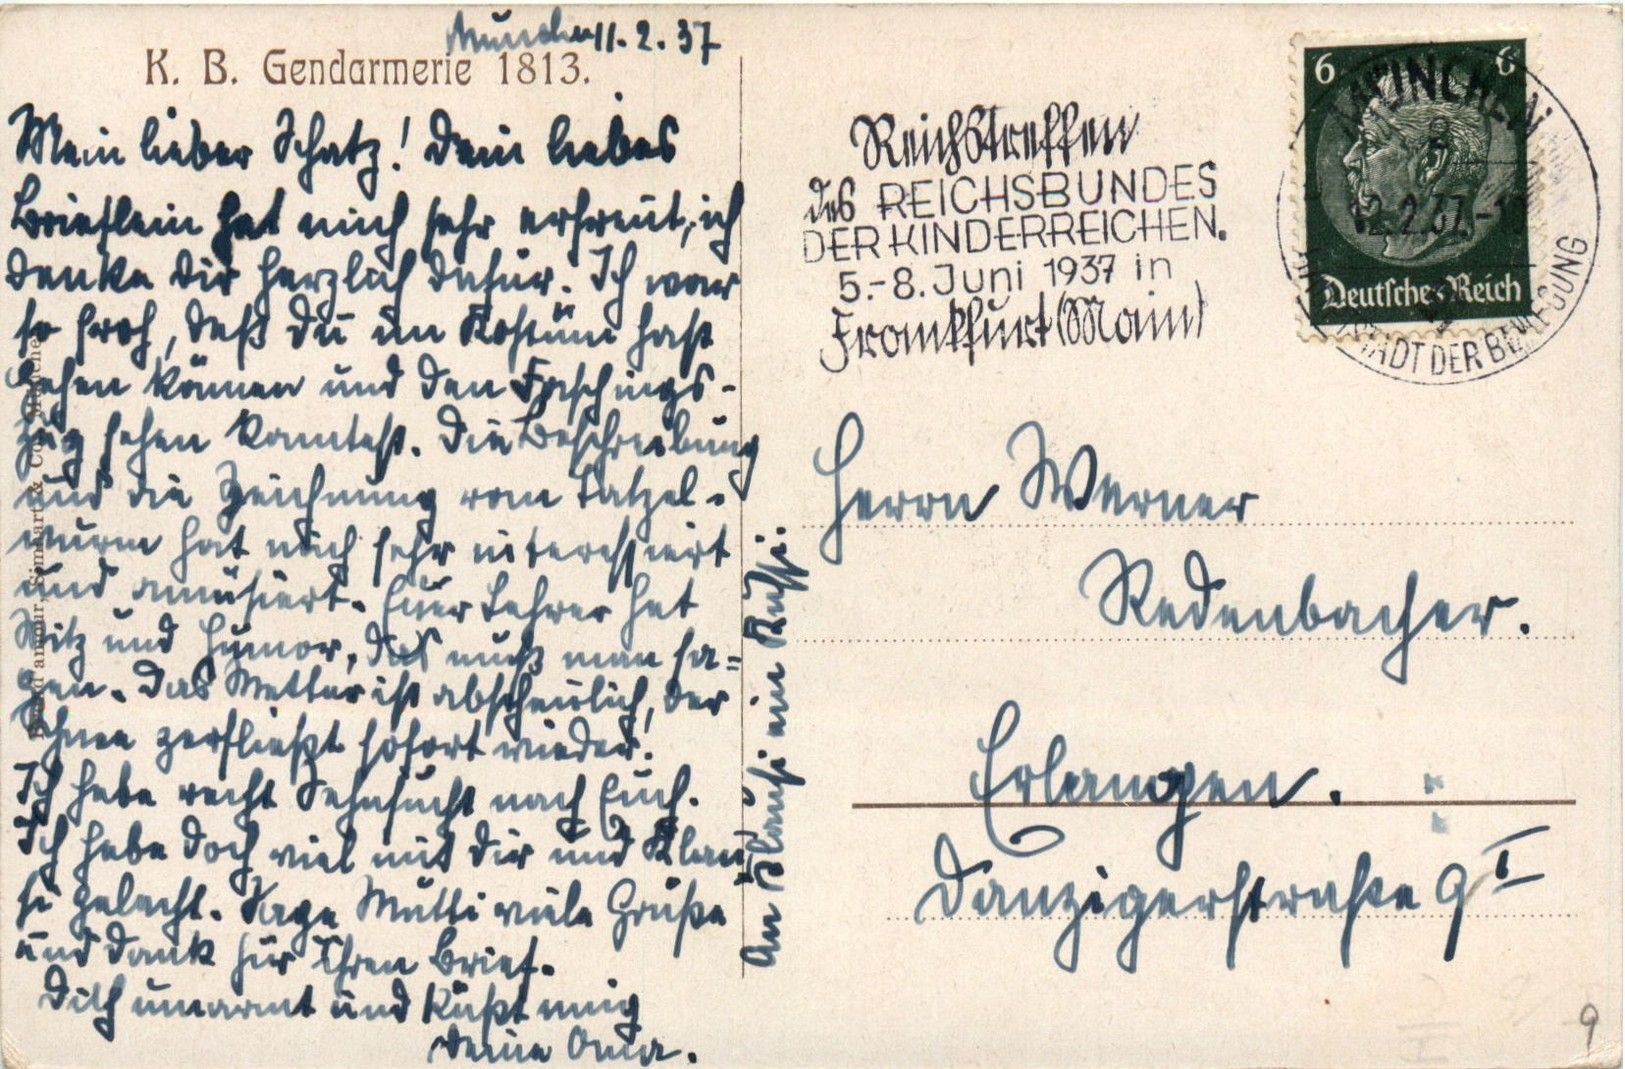 München 11. 2. 37
K. B. Gendarmerie 1813.
Mein lieber Schatz! Dein liebes
Brieflein hat mich sehr erfreut, ich
danke Dir herzlich dafür. Ich war
so froh, daß Du im Kostüm hast
gehen können und den Faschings-
zug sehen konntest. Die Beschreibung
und die Zeichnung vom Tatzel-
wurm hat mich sehr interessiert
und amüsiert. Euer Lehrer hat
Witz und Humor, das muß man sa=
gen. Das Wetter ist abscheulich, der
Schnee zerfließt sofort wieder.
Ich habe recht Sehnsucht nach Euch.
Ich habe doch viel mit Dir und Klau
si gelacht. Sage Mutti viele Grüße
und Dank für Ihren Brief.
Dich umarmt und küßt innig
Deine Oma.
An Klausi ein Kussi.
Reichstreffen
des REICHSBUNDES
DER KINDERREICHEN.
5.-8. Juni 1937 in
Frankfurt (Main)
6 6
Deutsches Reich
MÜNCHEN
2
12.2.37.-
STADT DER BEWEGUNG
Herrn Werner
Redenbacher.
Erlangen.
Danzigerstraße 9 I
9